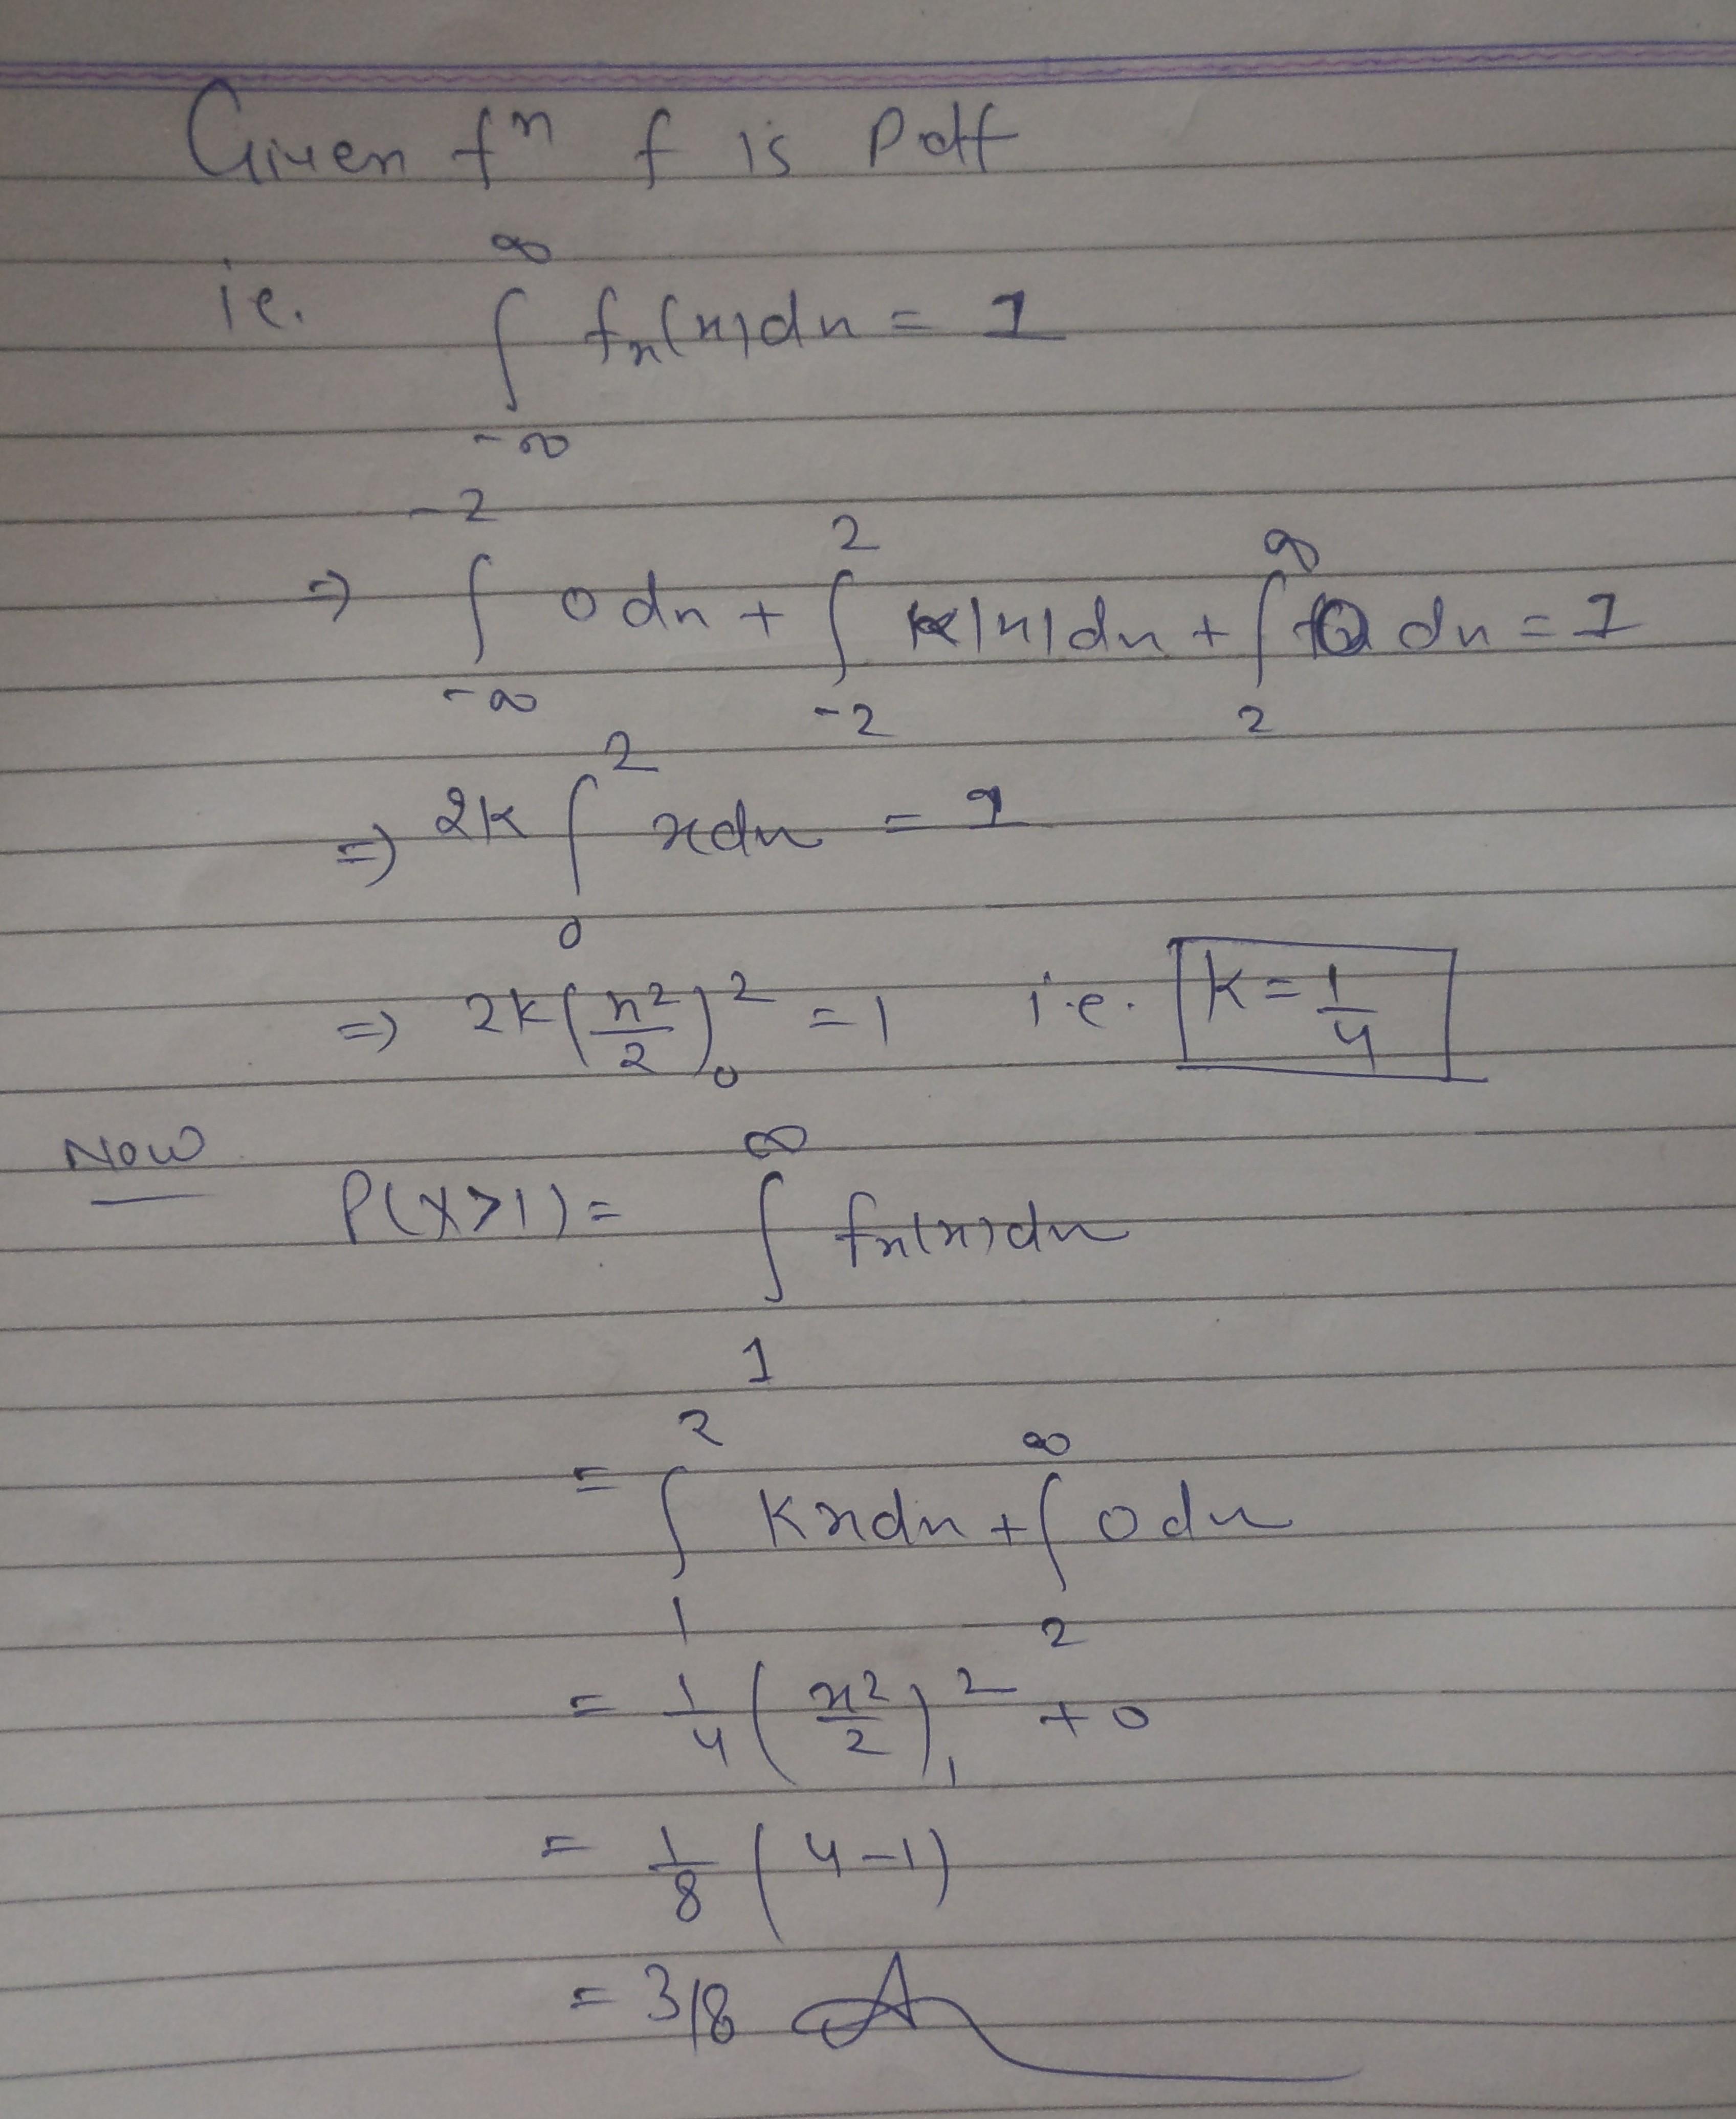 Given fⁿ f is Pdf
i.e. ∫_{-∞}^{∞} fₓ(x)dx = 1
⇒ ∫_{-∞}^{-2} 0 dx + ∫_{-2}^{2} k|x|dx + ∫_{2}^{∞} 0 dx = 1
⇒ 2k ∫_{0}^{2} xdx = 1
⇒ 2k(x²/2)₀² = 1 i.e. k = 1/4
Now
P(X>1) = ∫_{1}^{∞} fₓ(x)dx
= ∫_{1}^{2} kxdx + ∫_{2}^{∞} 0 dx
= 1/4 (x²/2)₁² + 0
= 1/8 (4-1)
= 3/8